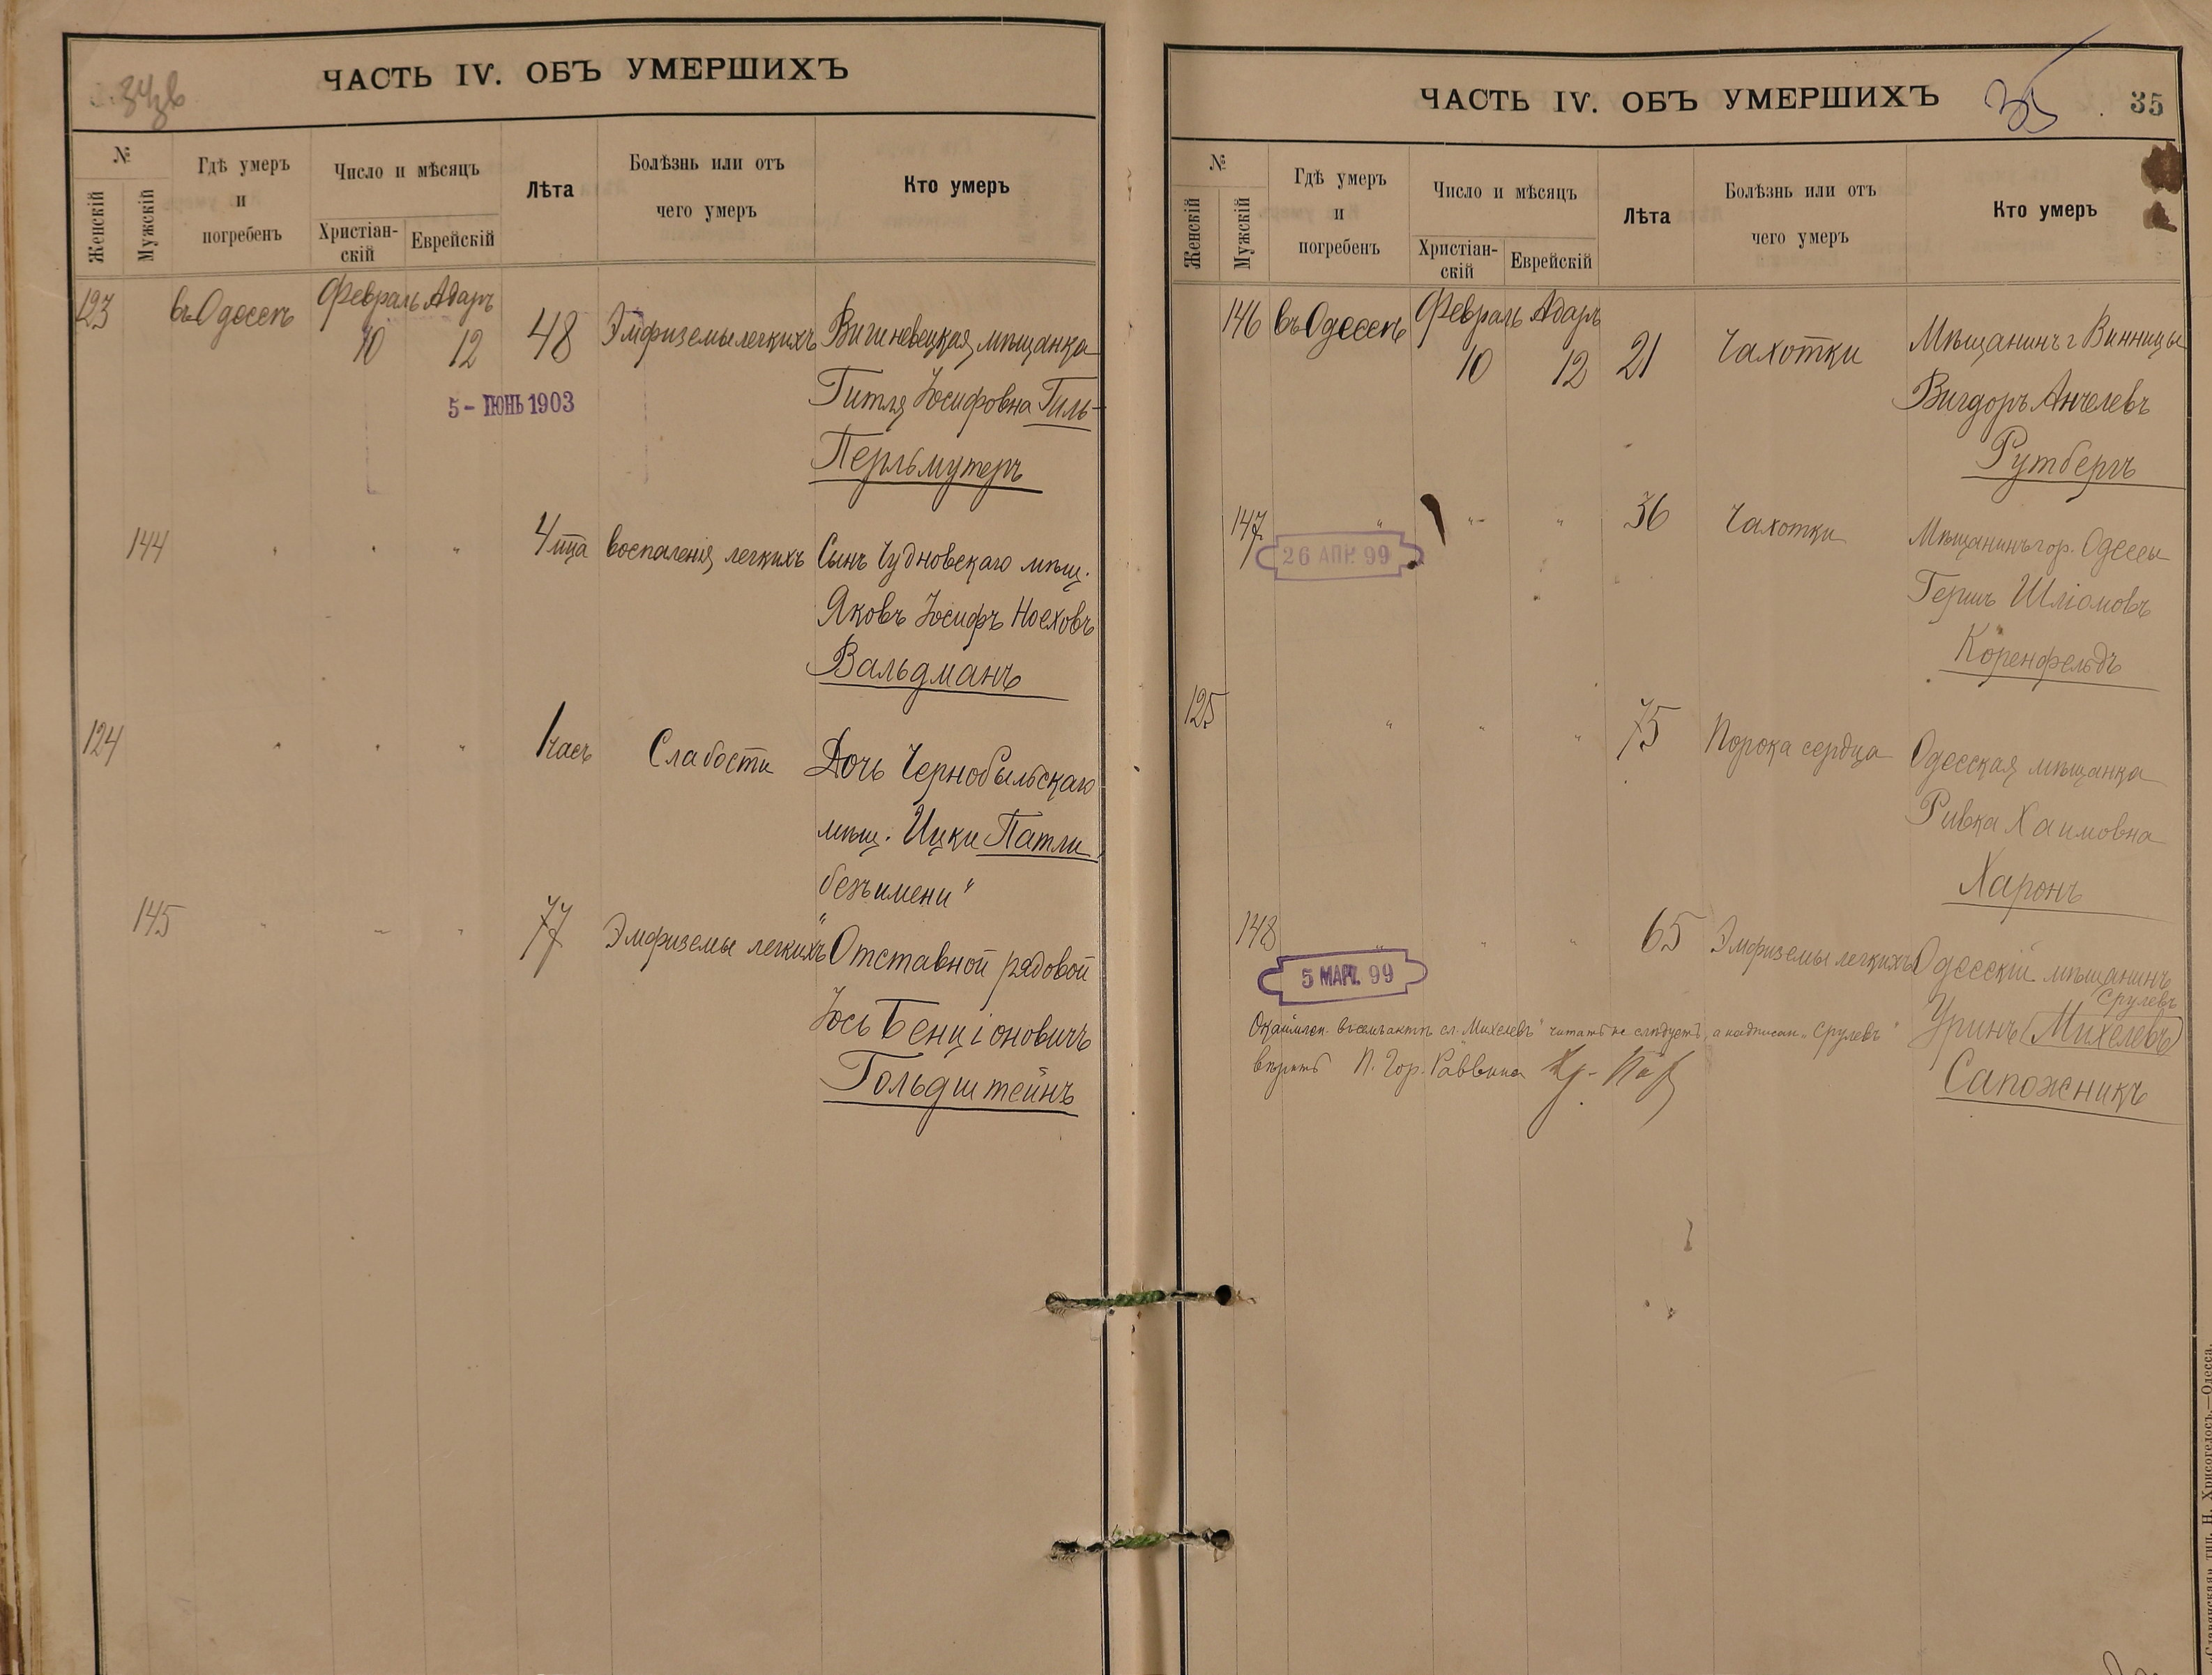 ЧАСТЬ IV. ОБЪ УМЕРШИХЪ
№
Женскій
Мужскій
Гдѣ умеръ
и
погребенъ
Число и мѣсяцъ
Христіан-
скій
Еврейскій
Лѣта
Болѣзнь или отъ
чего умеръ
Кто умеръ
123 въ Одессѣ Февраль Адаръ
10 12 48 Эмфиземы легкихъ мѣщанка
5- ІЮНЬ 1903
Гитля Іосифовна Гиль-
Перльмутеръ
144 " " " 4 м-ца воспаленія легкихъ Сынъ Чудновскаго мѣщ.
Яковъ Іосифъ Ноеховъ
Вальдманъ
124 " " " 1 часъ Слабости Дочь Чернобыльскаго
мѣщ. Ицки Патли
безъ имени"
145 " " " 77 Эмфиземы легкихъ Отставной рядовой
Іось Бенціоновичъ
Гольдштейнъ
ЧАСТЬ IV. ОБЪ УМЕРШИХЪ
35
35
№
Женскій
Мужскій
Гдѣ умеръ
и
погребенъ
Число и мѣсяцъ
Христіан-
скій
Еврейскій
Лѣта
Болѣзнь или отъ
чего умеръ
Кто умеръ
146 въ Одессѣ Февраль Адаръ
10 12 21 Чахотки Мѣщанинъ г Винницы
Вигдоръ Анчелевъ
Рутбергъ
147 " " " 36 Чахотки Мѣщанинъ гор. Одессы
26 АПР. 99
Гершъ Шліомовъ
Коренфельдъ
125 " " " 75 Порока сердца Одесская мѣщанка
Ривка Хаимовна
Харонъ
148 " " " 65 Эмфиземы легкихъ Одесскій мѣщанинъ
5 МАР. 99
Срулевъ
Уринъ (Михелевъ)
Сапожникъ
въ семъ актѣ сл. "Михелевъ" читать не слѣдуетъ, а надписан. "Срулевъ"
вѣрить П. Гор. Раввина
тип. Н. Хрисогелосъ.—Одесса.